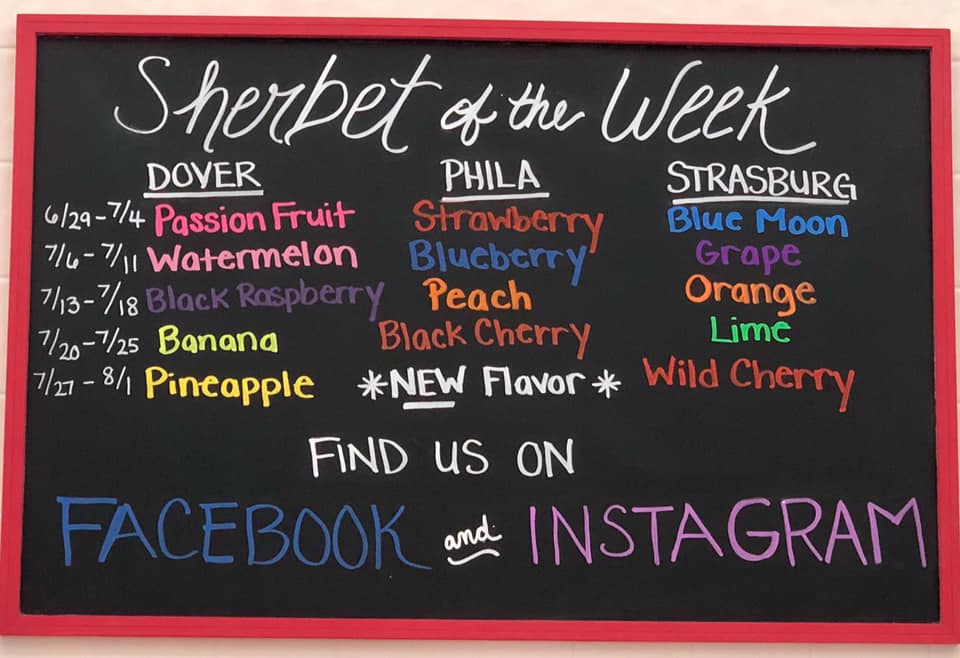 Sherbet of the Week
DOVER PHILA STRASBURG
6/29-7/4 Passion Fruit Strawberry Blue Moon
7/6-7/11 Watermelon Blueberry Grape
7/13-7/18 Black Raspberry Peach Orange
7/20-7/25 Banana Black Cherry Lime
7/27-8/1 Pineapple *NEW Flavor* Wild Cherry
FIND US ON
FACEBOOK and INSTAGRAM